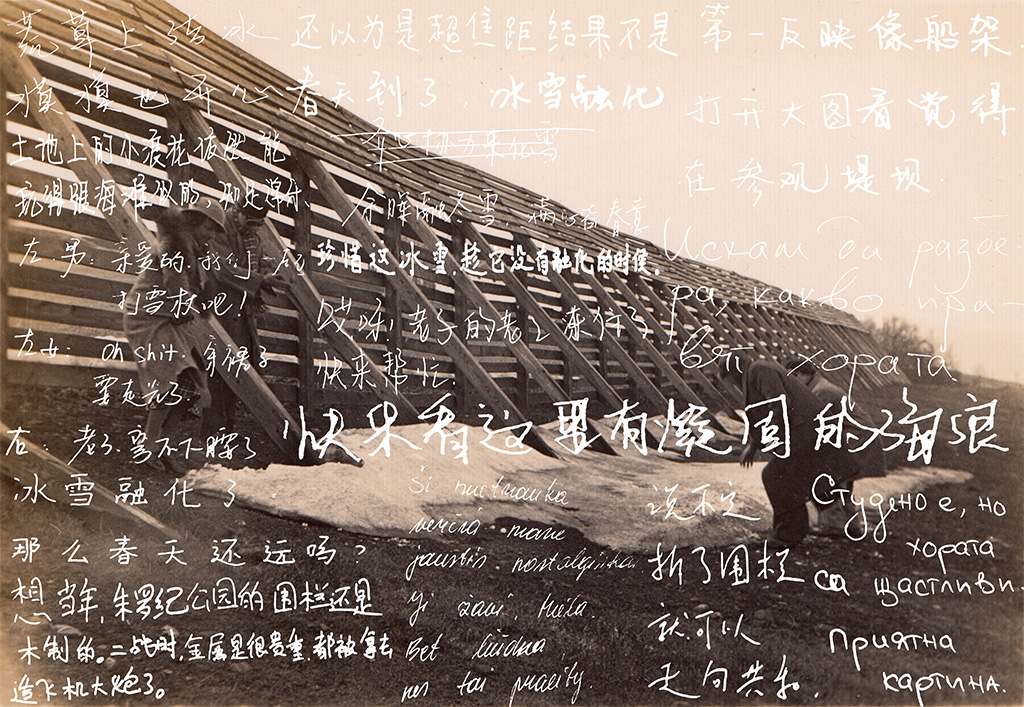 荒草上结冰 还以为是超焦距结果不是
也开心 春天到了，冰雪融化
土地上的小浪花依然能
玩得跟海滩似的，
左男：亲爱的，我们一起
打雪杖吧！
左女：oh shit. 裙子
要走光了.
右：老子弯不下腰了
冰雪融化了.
那么春天还远吗？
想当年，朱罗纪公园的围栏还是
木制的。二战时，金属是很贵重，都被拿去
造飞机大炮了。
余晖融冬雪 春意
珍惜这冰雪，趁它没有融化的时候.
哎呀！老子的老二冻住了，
快来帮忙.
快来看这里有凝固的海浪
Ši nuotrauka
verčia mane
jaustis nostalgiška
ji žavi, miela.
Bet liūdna,
nes tai praeity.
第一反映像船架.
打开大图看觉得
在参观堤坝.
Искам да разбе-
ра, какво пра-
вят хората
说不定
拆了围栏
就可以
走向共和.
Студено е, но
хората
са щастливи.
Приятна
картина.